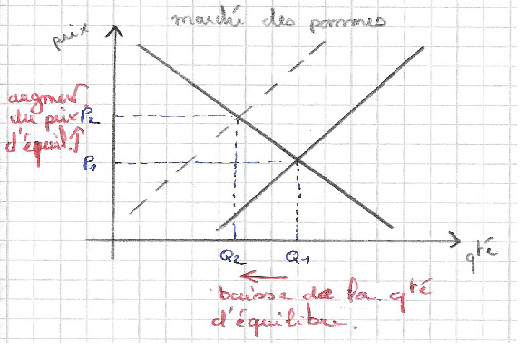 marché des pommes
prix
augmen^t
du prix
d'équil.
P2
P1
Q2
Q1
qté
baisse de la qté
d'équilibre.